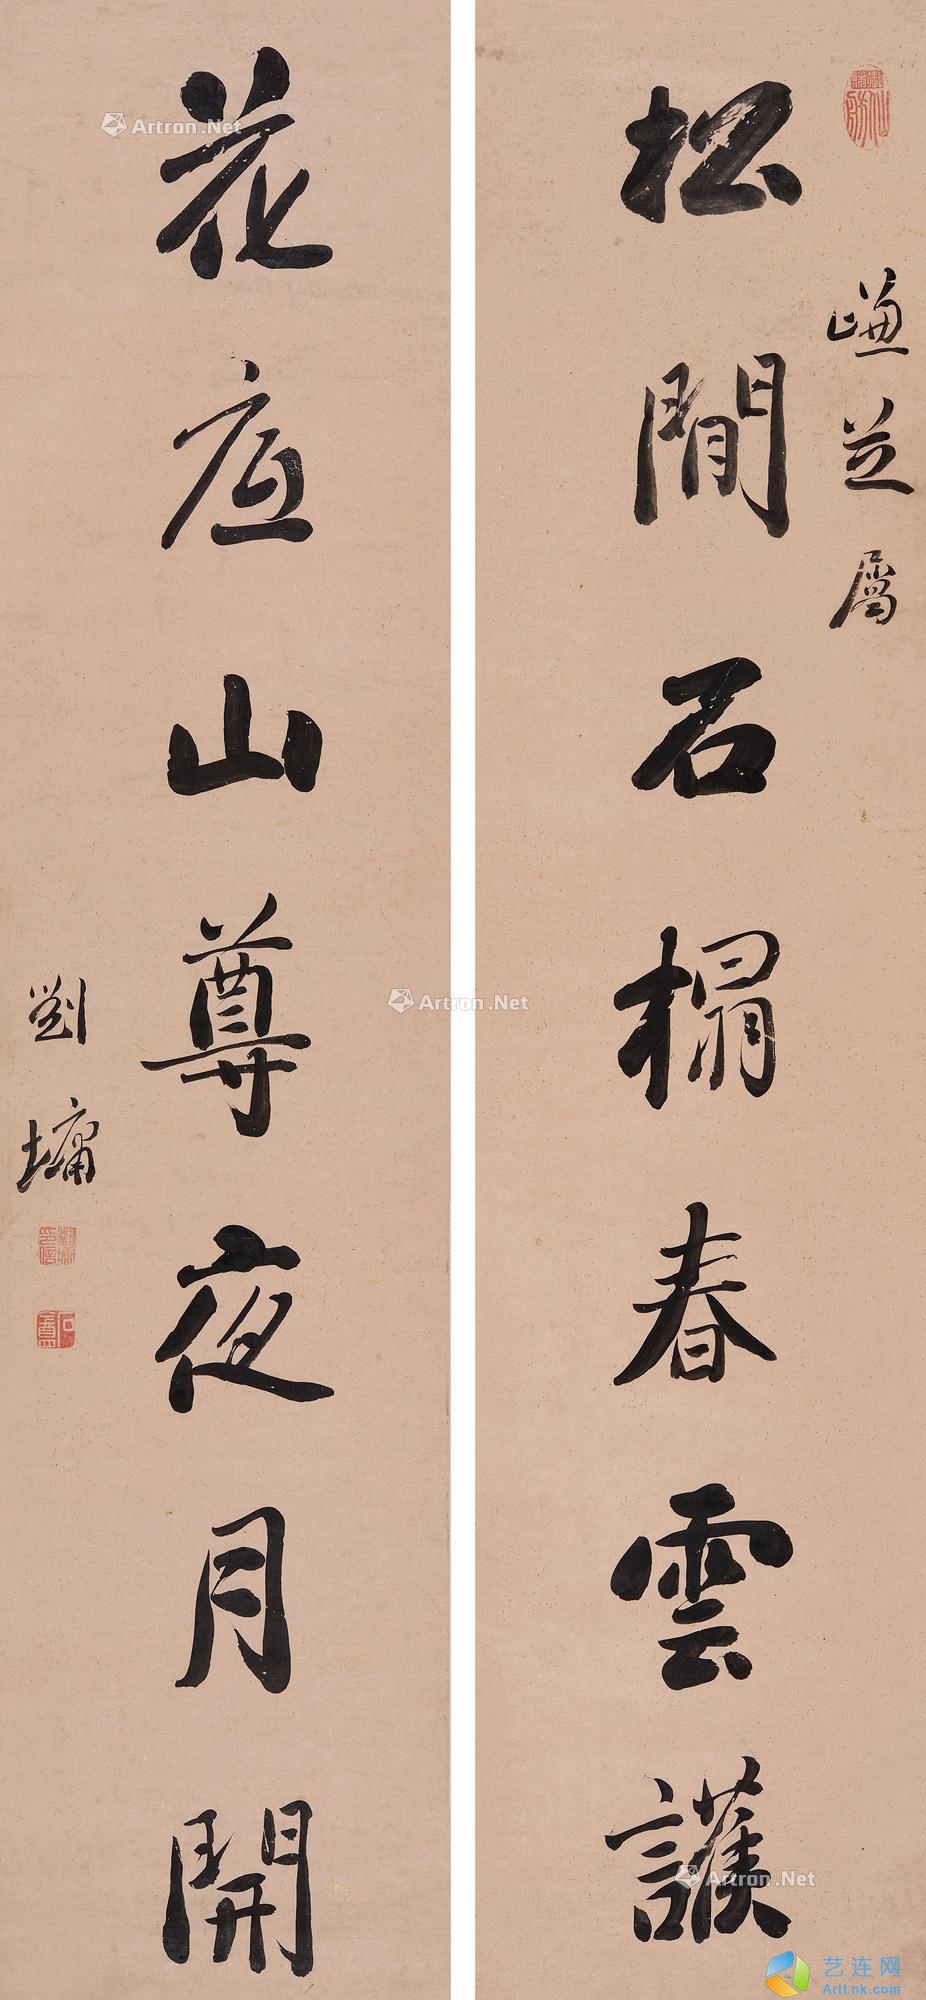 松間石榻春雲護
謙芝屬
花底山尊夜月開
劉墉
劉墉印信
石菴
Artron.Net
Artron.Net
Artron.Net
艺连网
ArtLnk.com